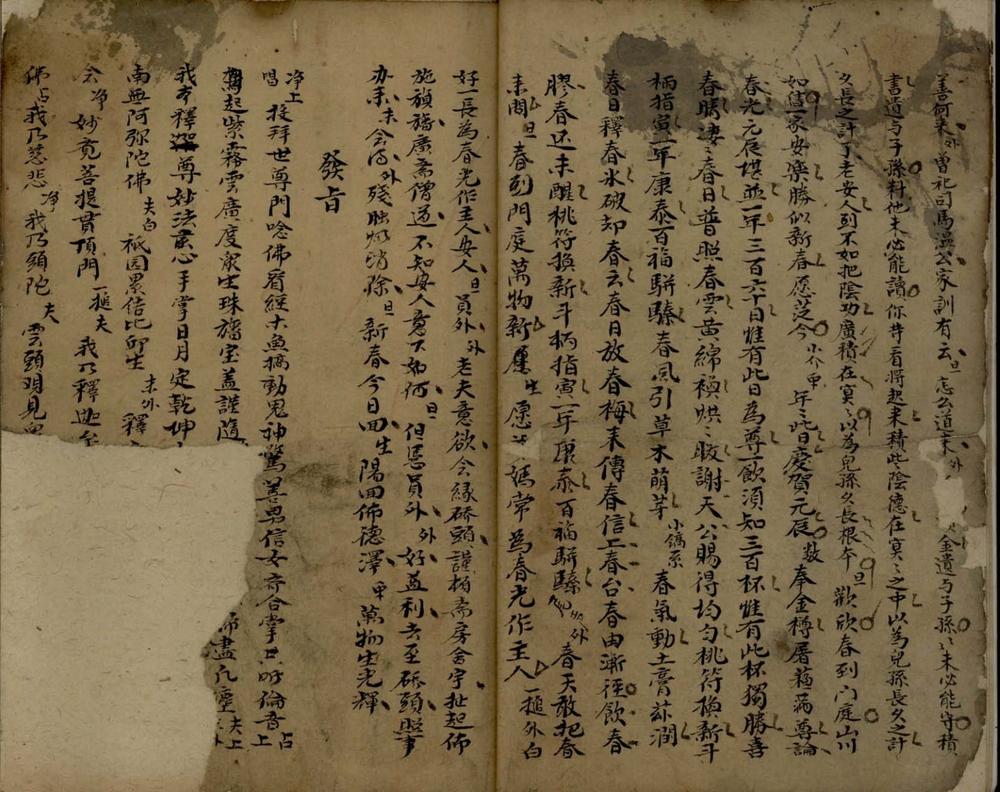 善何来外曾祀司馬温公家訓有云旦怎么道末外 金遺与子孫〻未必能守積
書遺与子孫料他未必能讀你井看將起来積些陰德在冥〻之中以為兒孫長久之計
久長之計丁老安人到不如把陰功廣積在冥〻以為兒孫久長根本旦歡欣春到门庭山川
如舊一家安樂勝似新春愿受今小介甲年〻此日慶賀元辰 奉金樽屠蘓满尊論
春光元辰堪並一年三百六十日惟有此日為尊一飲須知三百杯惟有此杯獨勝喜
春勝淒〻春日普照春雲黄綿襖烘〻暖謝天公賜得均匀桃符換新斗
柄指寅一年康泰百福駢臻春風引草木萌芽 春氣動土膏蘇潤
春日釋春氷破却春云春日放春梅来傳春信上春台春由漸徑飲春
膠春还未醒桃符換新斗柄指寅一年康泰百福駢臻 外春天敢把春
来問旦春到門庭萬物新 生愿 媽常為春光作主人一搥外白
好一長為春光作主人安人旦員外外老夫意欲会緣硚頭謹栢斋房舍宇扯起佈
施旗旛廣斋僧道不知安人意下如何旦但憑員外外好益利去至硚頭照事
办来末会得外残臘炤消除旦新春今日回生陽回佈德澤甲萬物生光輝
發旨
净上唱投拜世尊門唸佛看經木魚搞動鬼神驚善男信女齐合掌 倫音占上
起紫霧雲廣度眾生珠旛宝盖謹隨 佛盡凡塵夫上
我方釋尊妙法蓮心手掌日月定乾坤
南無阿弥陀佛夫白祇因累信比卯生末外釋
念净妙竟菩提貫頂門一搥夫我乃釋迦
佛占我乃慈悲净我乃頭陀夫雲頭观見